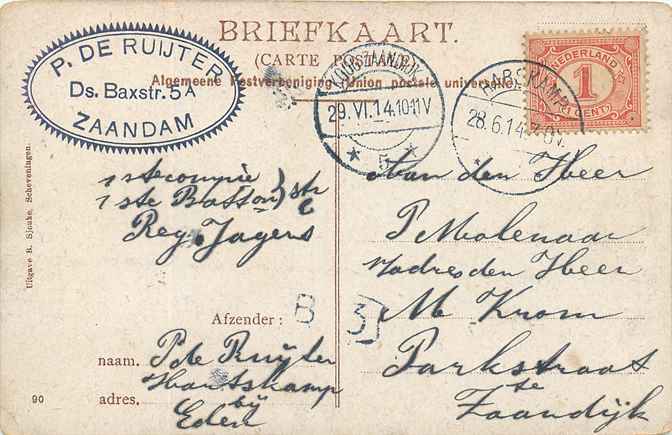 BRIEFKAART.
(CARTE POSTALE)
Algemeene Postvereeniging (Union postale universelle)
P. DE RUIJTER
Ds. Baxstr. 5A
ZAANDAM
KOOG-ZAANDIJK
29.VI.14.10-11V
5
HARSKAMP
28.6.14.7-8V.
NEDERLAND
1
CENT
1ste compie
1ste Batton
Reg. Jagers
Aan den Heer
P Molenaar
adres den Heer
M Krom
Parkstraat
te
Zaandijk
B
3
Afzender:
naam. P de Ruijter
adres. Harskamp
bij
Eden
Uitgave R. Sjouke, Scheveningen.
90